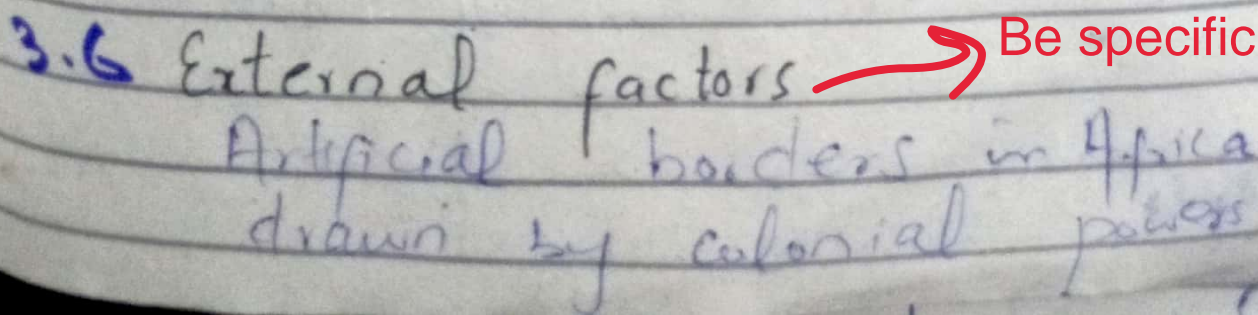 3.6 External factors Be specific
Artificial borders in Africa
drawn by colonial powers